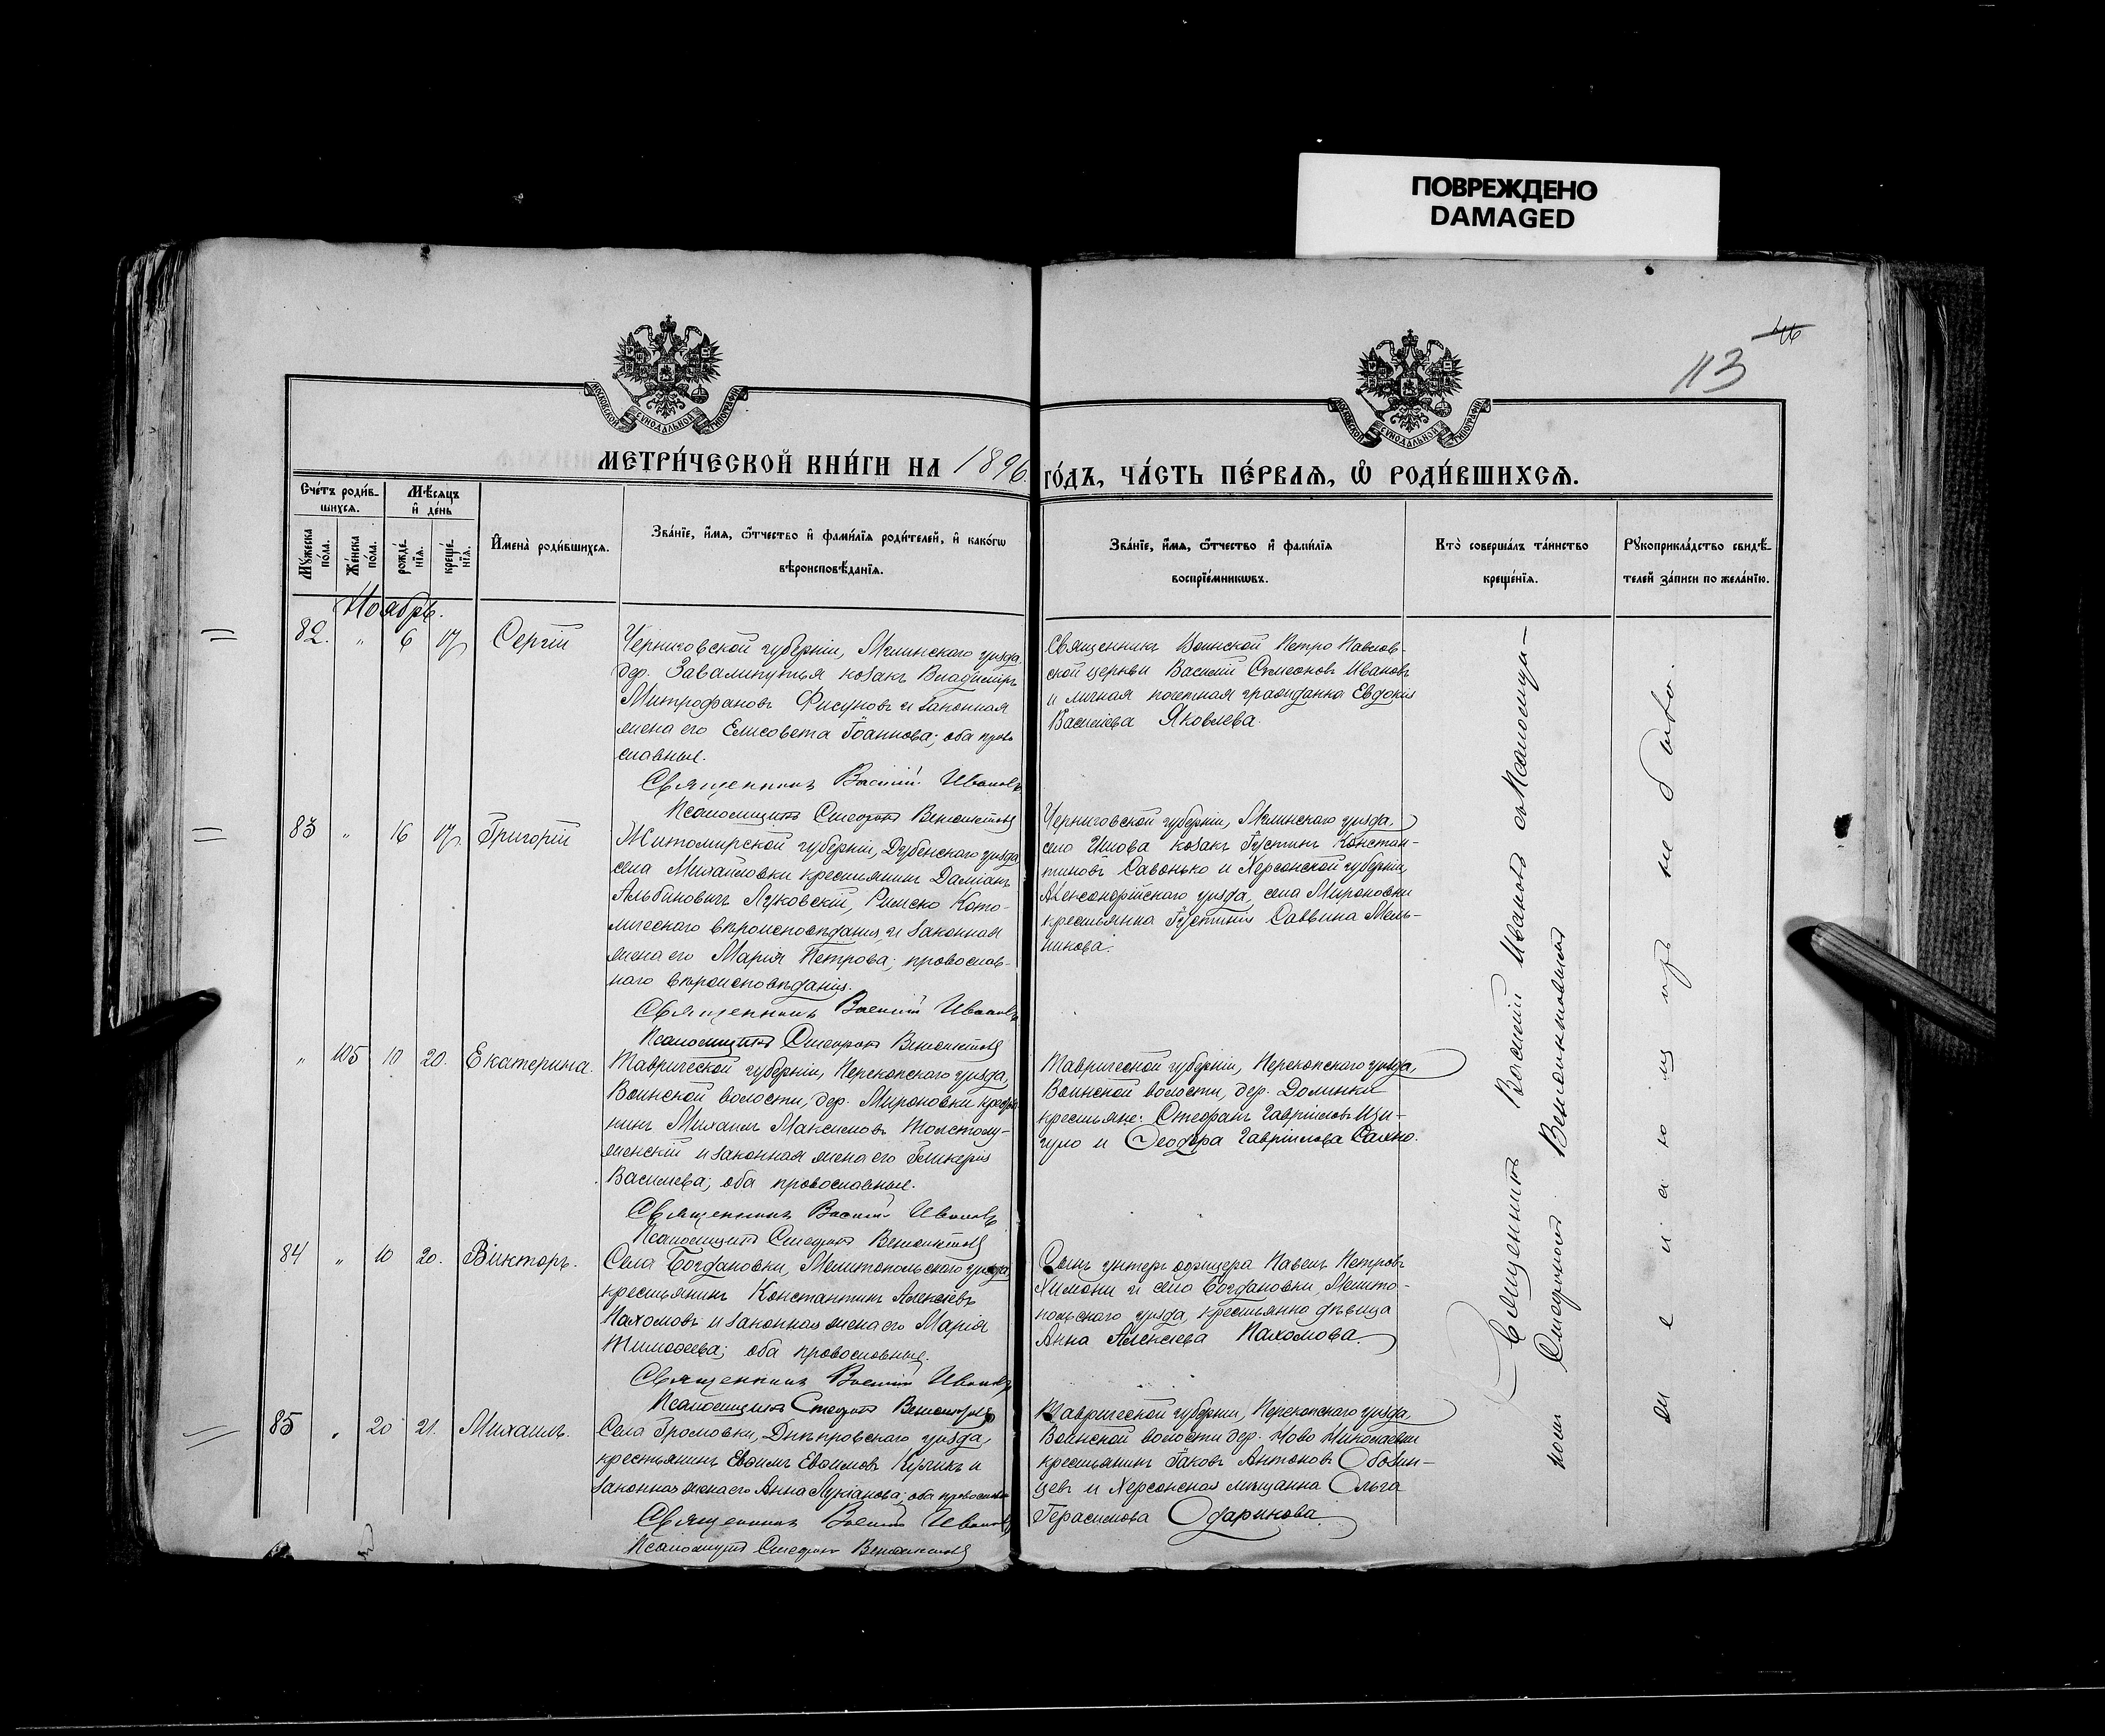 ПОВРЕЖДЕНО
DAMAGED
113
МОСКОВСКОЙ СѴНОДАЛЬНОЙ ТИПОГРАФІИ
МОСКОВСКОЙ СѴНОДАЛЬНОЙ ТИПОГРАФІИ
МЕТРИ́ЧЕСКОЙ КНИ́ГИ НА 1896
ГО́ДЪ, ЧА́СТЬ ПЕ́РВАѦ, Ѽ РОДИ́ВШИХСѦ.
Сче́тъ роди́в-
шихсѧ.
Мѣ́сѧцъ
и҆ де́нь
Мꙋ́жеска
по́ла.
Же́нска
по́ла.
рожде́-
нїѧ.
креще́-
нїѧ.
И҆мена̀ роди́вшихсѧ.
Зва́нїе, и҆́мѧ, ѻ҆́тчество и҆ фами́лїѧ роди́телей, и҆ како́гѡ
вѣроисповѣ́данїѧ.
Зва́нїе, и҆́мѧ, ѻ҆́тчество и҆ фами́лїѧ
воспрїе́мникѡвъ.
Кто̀ соверша́лъ та́инство
креще́нїѧ.
Рꙋкоприкла́дство свидѣ́-
телей за́писи по жела́нїю.
Ноябрь.
82. " 6 17 Сергій
Черниговской губерніи, Мглинскаго уѣзда,
дер. Завалипутья козакъ Владиміръ
Митрофановъ Фисуновъ и законная
жена его Елисавета Іоаннова; оба право
славные.
Священникъ Василій Ивановъ
Псаломщикъ Стефанъ
Священникъ Воинской Петро Павлов-
ской церкви Василій Симеоновъ Ивановъ
и личная почетная гражданка Евдокія
Васильева Яковлева.
83 " 16 17 Григорій
Житомирской губерніи, Дубенскаго уѣзда,
села Михайловки крестьянинъ Даміанъ
Альбиновичъ Луковскій, Римско Като-
лическаго вѣроисповѣданія, и законная
жена его Марія Петрова; православ-
наго вѣроисповѣданія.
Священникъ Василій Ивановъ
Псаломщикъ Стефанъ
Черниговской губерніи, Мглинскаго уѣзда,
село козакъ Іустинъ Констан-
тиновъ Савонько и Херсонской губерніи,
Александрійскаго уѣзда, села Мироновки
крестьянка Іустинія Саввина Мель-
никова.
" 105 10 20. Екатерина.
Таврической губерніи, Перекопскаго уѣзда,
Воинской волости, дер. Мироновки крестья
нинъ Михаилъ Максимовъ Толстолу-
женскій и законная жена его Гликерія
Васильева; оба православные.
Священникъ Василій Ивановъ
Псаломщикъ Стефанъ
Таврической губерніи, Перекопскаго уѣзда,
Воинской волости, дер. Долинки
крестьяне: Стефанъ Гавріиловъ
и Ѳеодора Гавріилова Сахно.
84 " 10 20. Викторъ.
Села Богдановки, Мелитопольскаго уѣзда,
крестьянинъ Константинъ Алексѣевъ
Пахомовъ и законная жена его Марія
Тимоѳеева; оба православные.
Священникъ Василій Ивановъ
Псаломщикъ Стефанъ
Сынъ унтеръ офицера Павелъ Петровъ
и село Богдановки, Мелито-
польскаго уѣзда, крестьянка дѣвица
Анна Алексѣева Пахомова.
85 " 20 21. Михаилъ.
Села Громовки, Днѣпровскаго уѣзда,
крестьянинъ Евѳимъ Евѳимовъ и
законная жена его Анна Лукіанова; оба православн
Священникъ Василій Ивановъ
Псаломщикъ Стефанъ
Таврической губерніи, Перекопскаго уѣзда,
Воинской волости дер. Ново Николаевки
крестьянинъ Іаковъ Антоновъ Обозин-
цевъ и Херсонская мѣщанка Ольга
Герасимова Одарикова.
Священникъ Василій Ивановъ съ Псаломщи-
комъ Стефаномъ
не было.